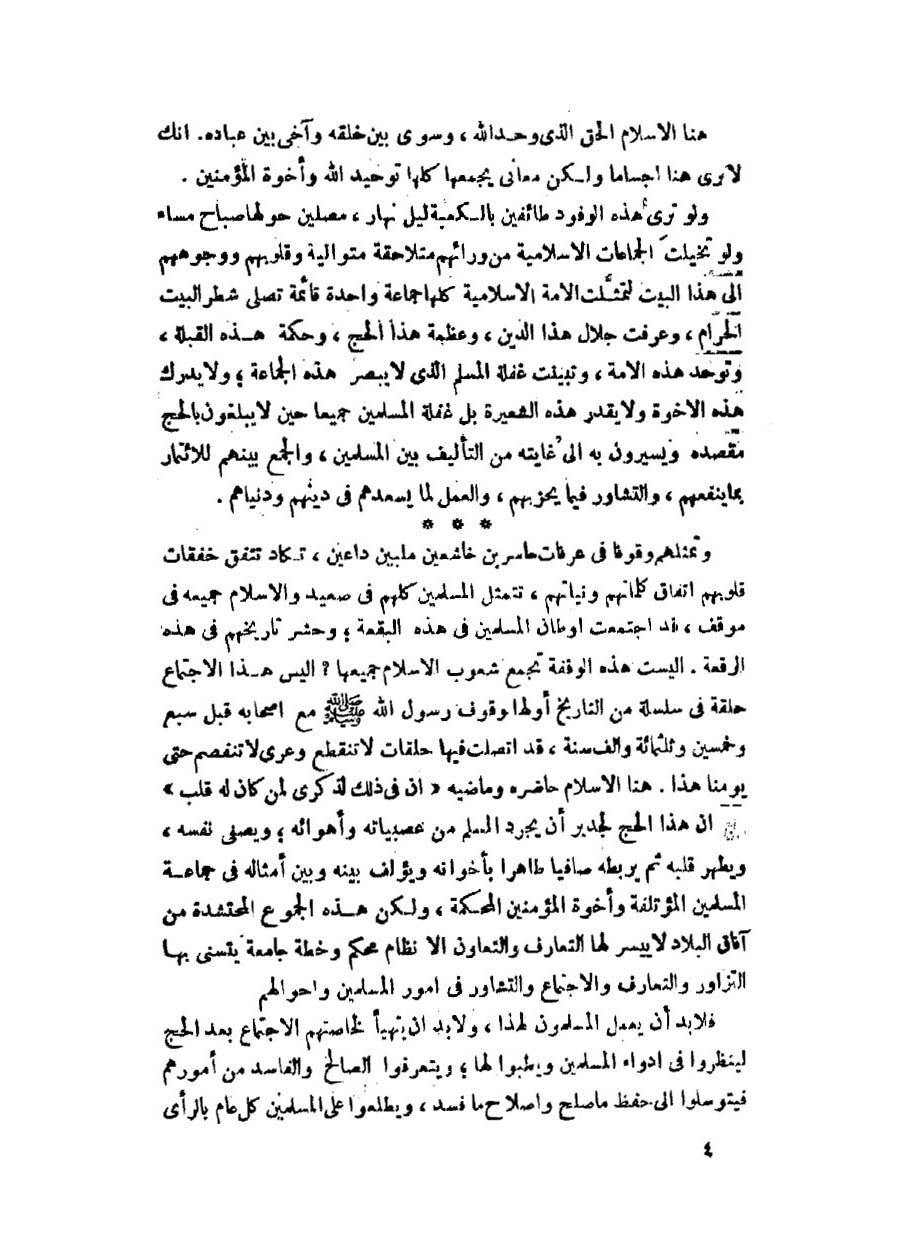 هنا الاسلام الحق الذى وحد الله ، وسوى بين خلقه وآخى بين عباده. انك
لا ترى هنا اجساما ولكن معانى يجمعها كلها توحيد الله وأخوة المؤمنين .
ولو ترى هذه الوفود طائفين بالكعبة ليل نهار ، مصلين حولها صباح مساء
ولو تخيلت الجماعات الاسلامية من ورائهم متلاحقة متوالية وقلوبهم ووجوههم
الى هذا البيت لتمثلت الامة الاسلامية كلها جماعة واحدة قائمة تصلى شطر البيت
الحرام ، وعرفت جلال هذا الدين ، وعظمة هذا الحج ، وحكمة هذه القبلة ،
وتوحد هذه الامة ، وتبينت غفلة المسلم الذى لا يبصر هذه الجماعة ؛ ولا يدرك
هذه الاخوة ولا يقدر هذه الشعيرة بل غفلة المسلمين جميعا حين لا يبلغون بالحج
مقصده ويسيرون به الى غايته من التأليف بين المسلمين ، والجمع بينهم للائتمار
بما ينفعهم ، والتشاور فيما يحزبهم ، والعمل لما يسعدهم فى دينهم ودنياهم .
* * *
وتمثلهم وقوفا فى عرفات حاسرين خاشعين ملبين داعين ، تكاد تتفق خفقات
قلوبهم اتفاق كلماتهم ونياتهم ، تتمثل المسلمين كلهم فى صعيد والاسلام جميعه فى
موقف ، قد اجتمعت اوطان المسلمين فى هذه البقعة ؛ وحشر تاريخهم فى هذه
الرقعة . اليست هذه الوقفة تجمع شعوب الاسلام جميعها ؟ اليس هذا الاجتماع
حلقة فى سلسلة من التاريخ أولها وقوف رسول الله ﷺ مع اصحابه قبل سبع
وخمسين وثلثمائة والف سنة ، قد اتصلت فيها حلقات لا تنقطع وعرى لا تنفصم حتى
يومنا هذا . هنا الاسلام حاضره وماضيه « ان فى ذلك لذكرى لمن كان له قلب »
ان هذا الحج لجدير أن يجرد المسلم من عصبياته وأهوائه ؛ ويصفى نفسه ،
ويطهر قلبه ثم يربطه صافيا طاهرا بأخوانه ويؤلف بينه وبين أمثاله فى جماعة
المسلمين المؤتلفة وأخوة المؤمنين المحكمة ، ولكن هذه الجموع المحتشدة من
آفاق البلاد لا ييسر لها التعارف والتعاون الا نظام محكم وخطة جامعة يتسنى بها
التزاور والتعارف والاجتماع والتشاور فى امور المسلمين واحوالهم
فلا بد أن يعمل المسلمون لهذا ، ولا بد ان يتهيأ لخاصتهم الاجتماع بعد الحج
لينظروا فى ادواء المسلمين ويطبوا لها ؛ ويتعرفوا الصالح والفاسد من أمورهم
فيتوسلوا الى حفظ ما صلح واصلاح ما فسد ، ويطلعوا على المسلمين كل عام بالرأى
٤